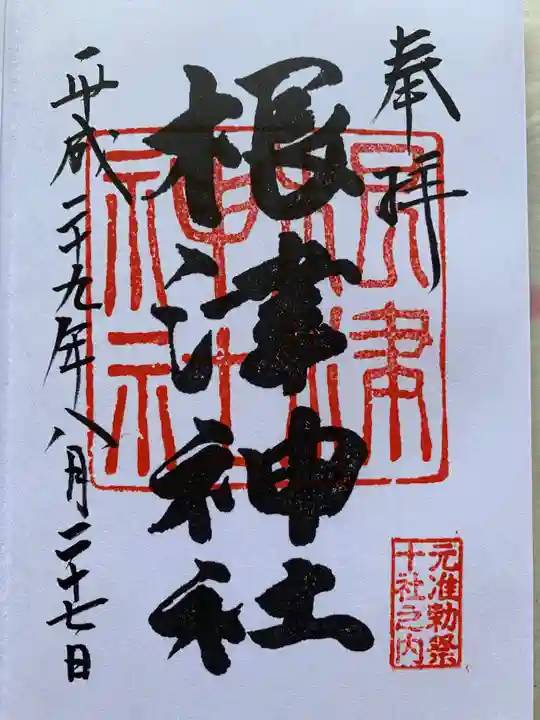 奉拝
根津神社
根津
神社
元准勅祭
十社之内
平成二十九年八月二十七日